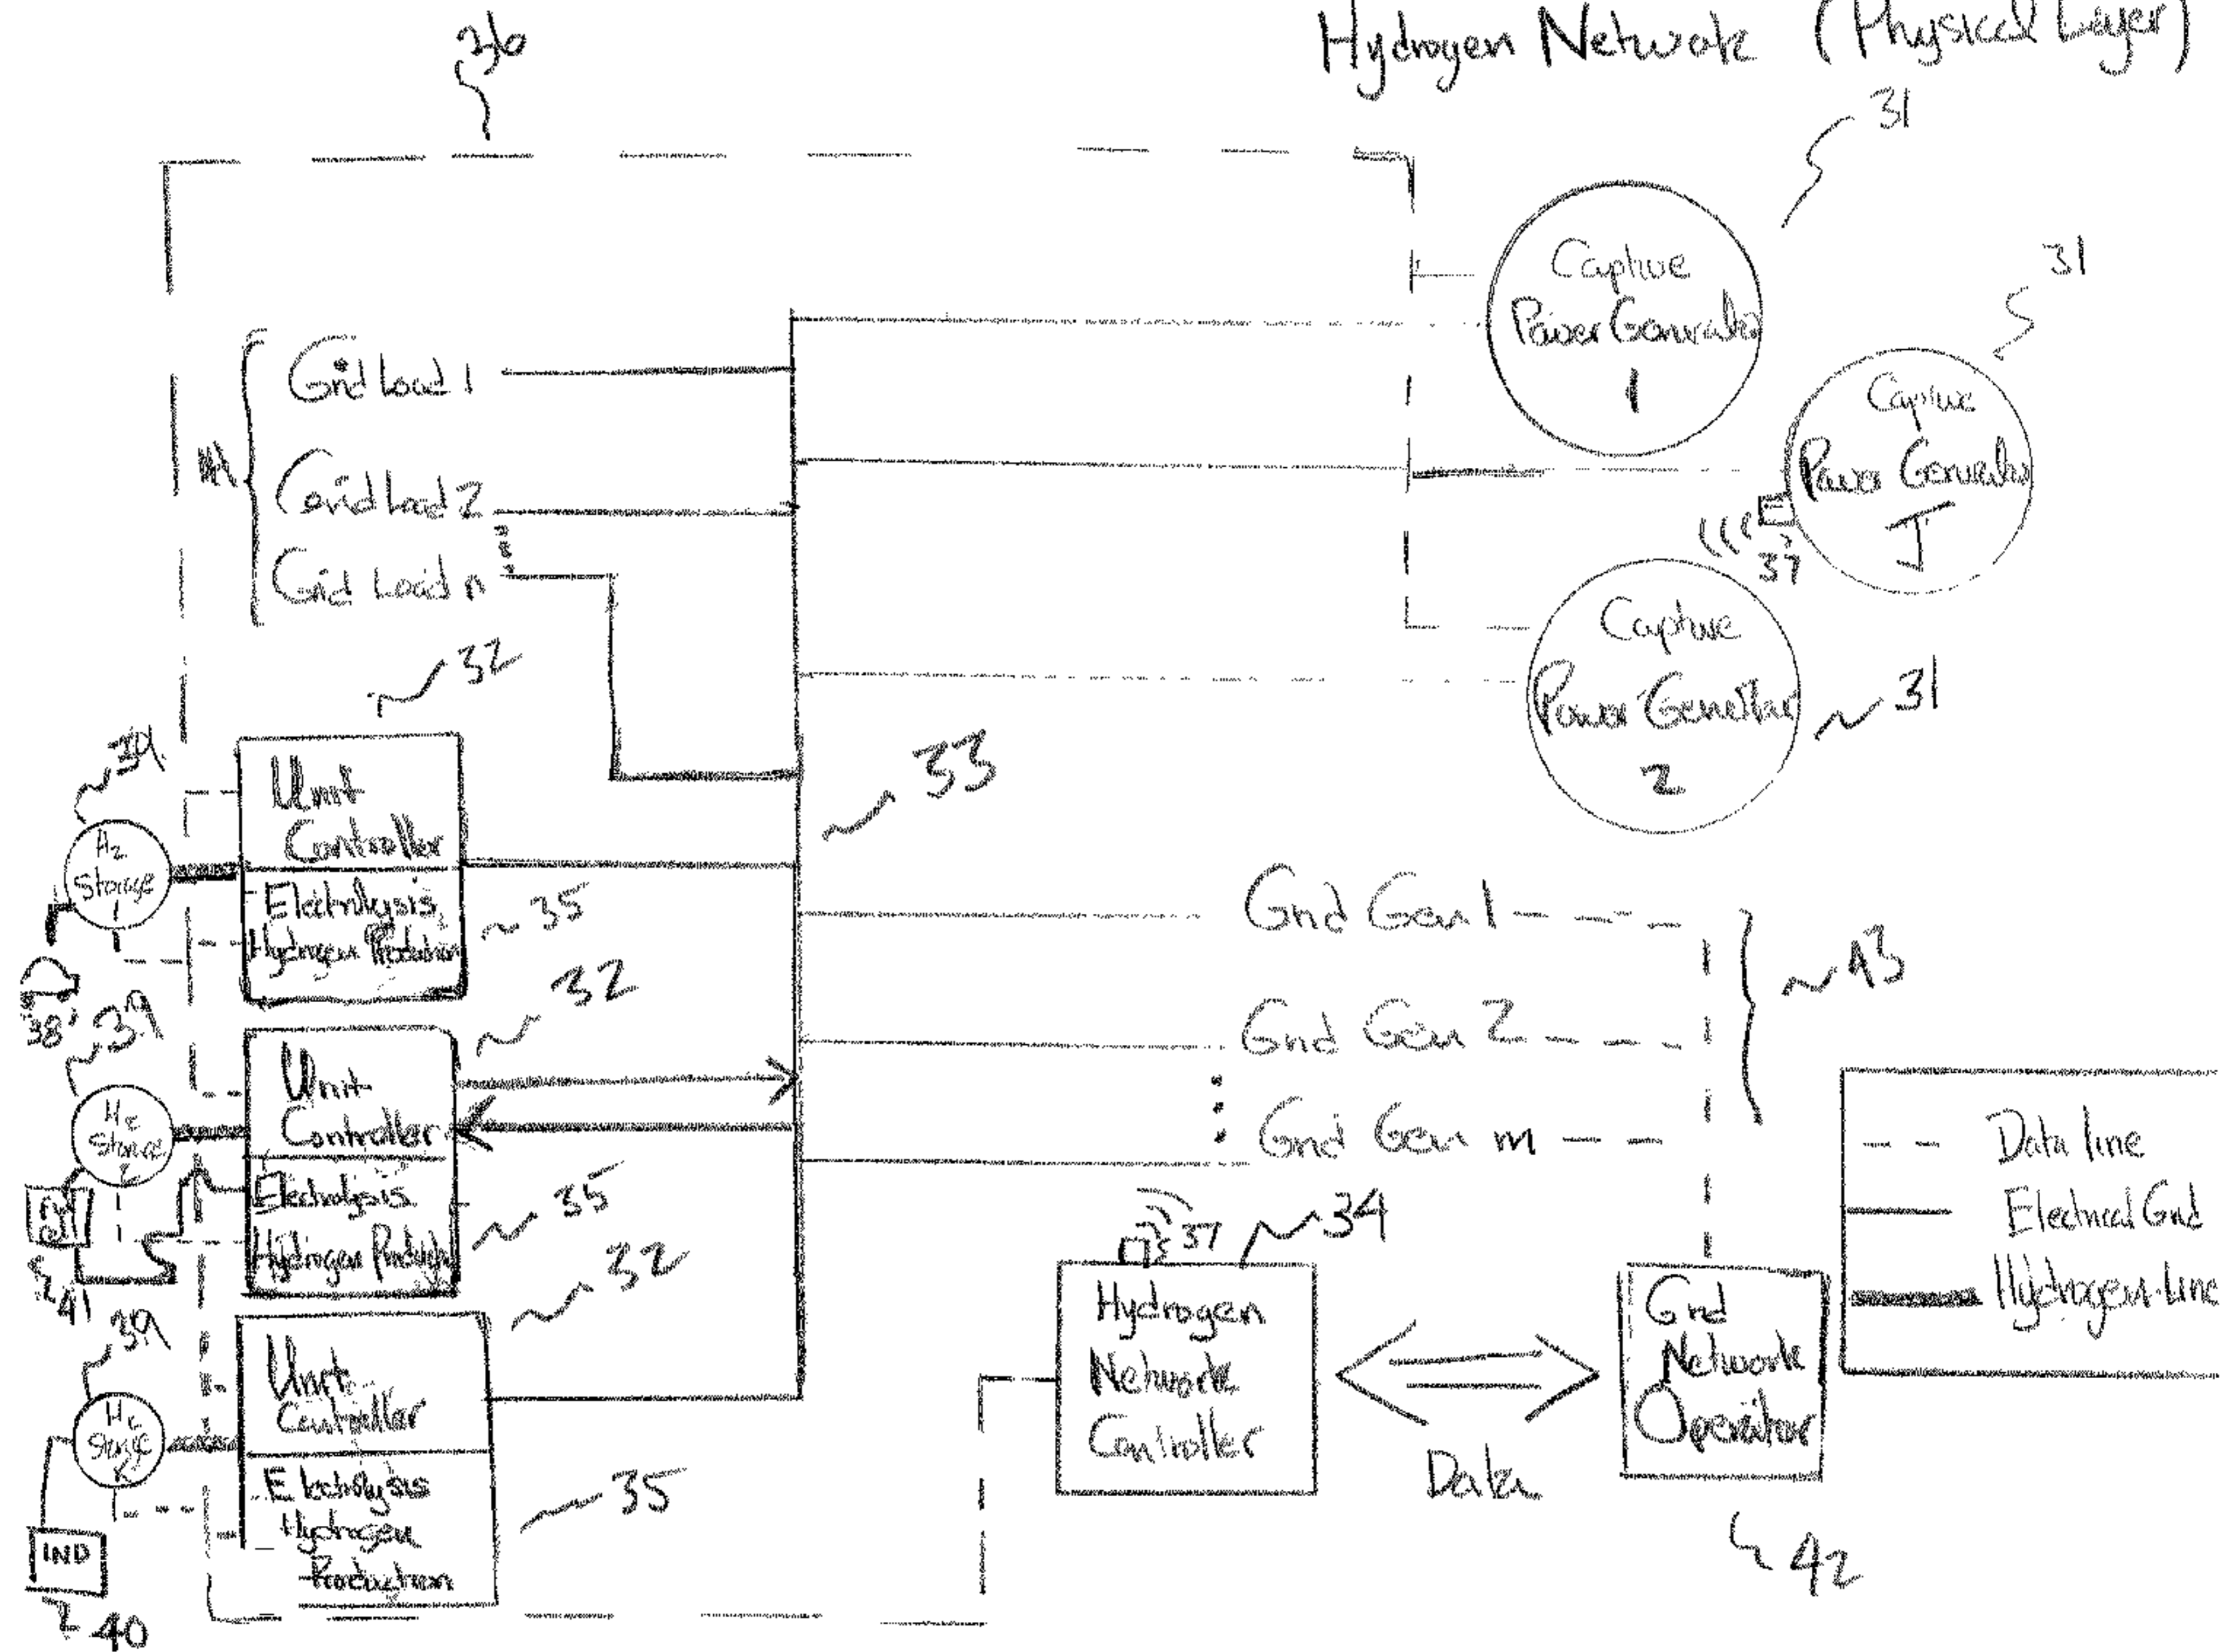 Hydrogen Network (Physical Layer)
36
31
Captive
Power Generator
1
31
Captive
Power Generator
J
37
Captive
Power Generator
2
31
Grid Load 1
Grid Load 2
Grid Load n
32
33
39
H2
Storage
Unit
Controller
Electrolysis
Hydrogen Production
35
38
32
39
H2
Storage
Unit
Controller
Electrolysis
Hydrogen Production
35
41
32
39
H2
Storage
K
Unit
Controller
Electrolysis
Hydrogen
Production
35
IND
40
Grid Gen 1
Grid Gen 2
Grid Gen m
43
37
34
Hydrogen
Network
Controller
Data
Grid
Network
Operator
42
Data line
Electrical Grid
Hydrogen line